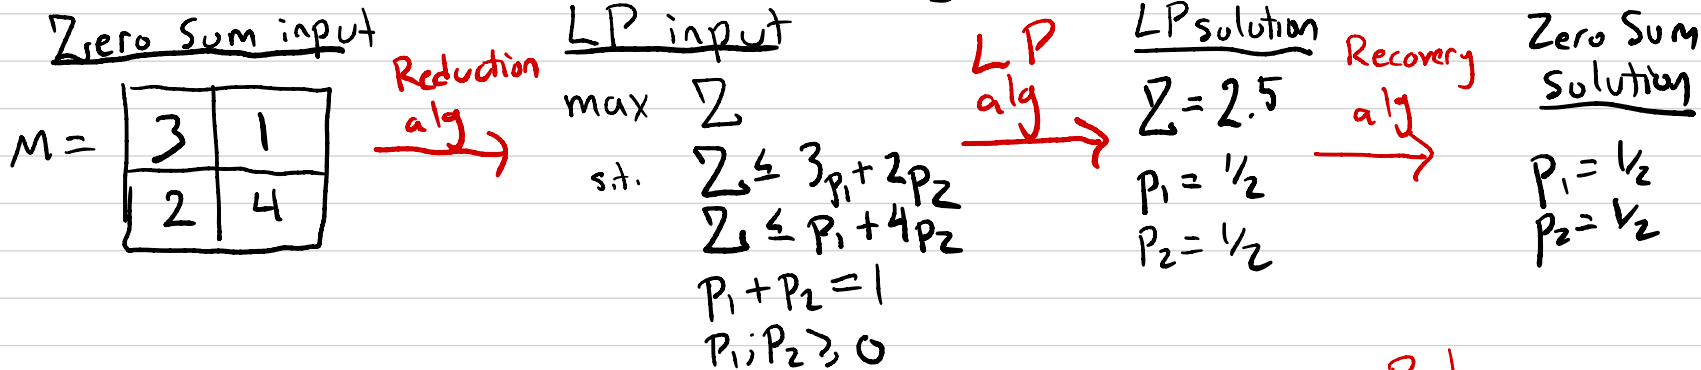 Zero Sum input
M =
3 1
2 4
Reduction
alg
LP input
max Z
s.t. Z ≤ 3p₁ + 2p₂
Z ≤ p₁ + 4p₂
p₁ + p₂ = 1
p₁, p₂ ≥ 0
LP
alg
LP solution
Z = 2.5
p₁ = 1/2
p₂ = 1/2
Recovery
alg
Zero Sum
solution
p₁ = 1/2
p₂ = 1/2